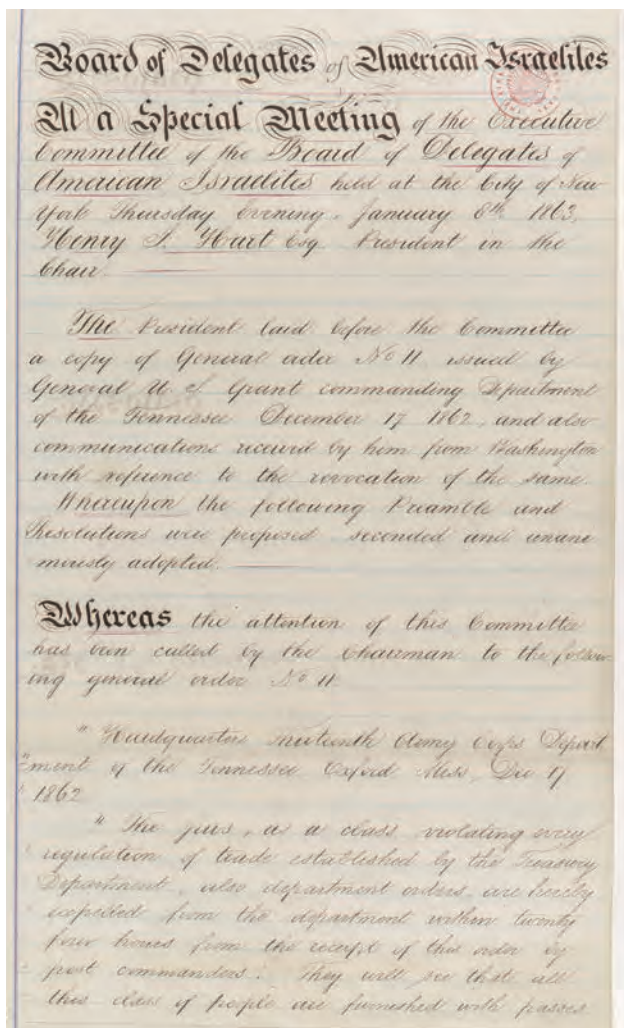 Board of Delegates of American Israelites
At a Special Meeting of the Executive
Committee of the Board of Delegates of
American Israelites held at the City of New
York Thursday Evening, January 8th 1863,
Henry I. Hart Esq President in the
Chair

The President laid before the Committee
a copy of General order No 11 issued by
General U S Grant commanding Department
of the Tennessee December 17 1862, and also
communications received by him from Washington
with reference to the revocation of the same.
Whereupon the following Preamble and
Resolutions were proposed seconded and unani
mously adopted.

Whereas the attention of this Committee
has been called by the Chairman to the follow
ing general order No 11

" Headquarters thirteenth Army Corps Depart
" ment of the Tennessee Oxford Miss, Dec 17
" 1862
" The jews, as a class, violating every
regulation of trade established by the Treasury
Department, also department orders, are hereby
expelled from the department within twenty
four hours from the receipt of this order by
post commanders. They will see that all
this class of people are furnished with passes